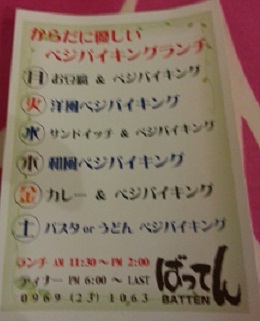 からだに優しい
ベジバイキングランチ
月 お豆腐 & ベジバイキング
火 洋風ベジバイキング
水 サンドイッチ & ベジバイキング
木 和風ベジバイキング
金 カレー & ベジバイキング
土 パスタorうどん ベジバイキング
ランチ AM 11:30～PM 2:00
ディナー PM 6:00～LAST
0969(23)1063
ばってん
BATTEN